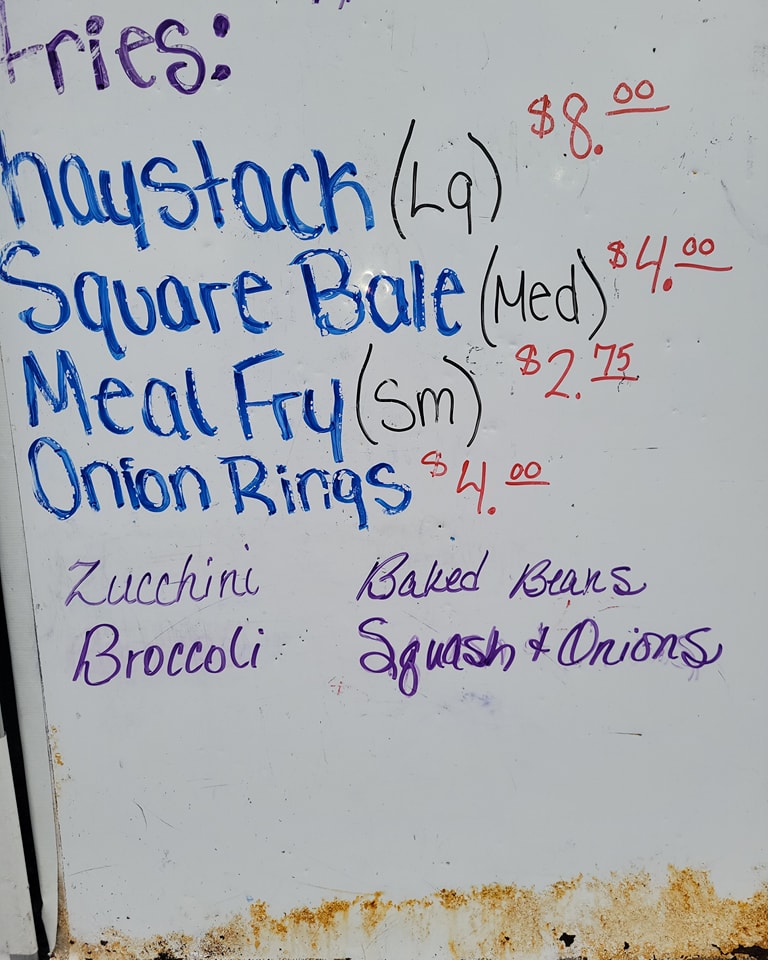 Fries:
haystack (Lg) $8.00
Square Bale (Med) $4.00
Meal Fry (Sm) $2.75
Onion Rings $4.00
Zucchini Baked Beans
Broccoli Squash & Onions